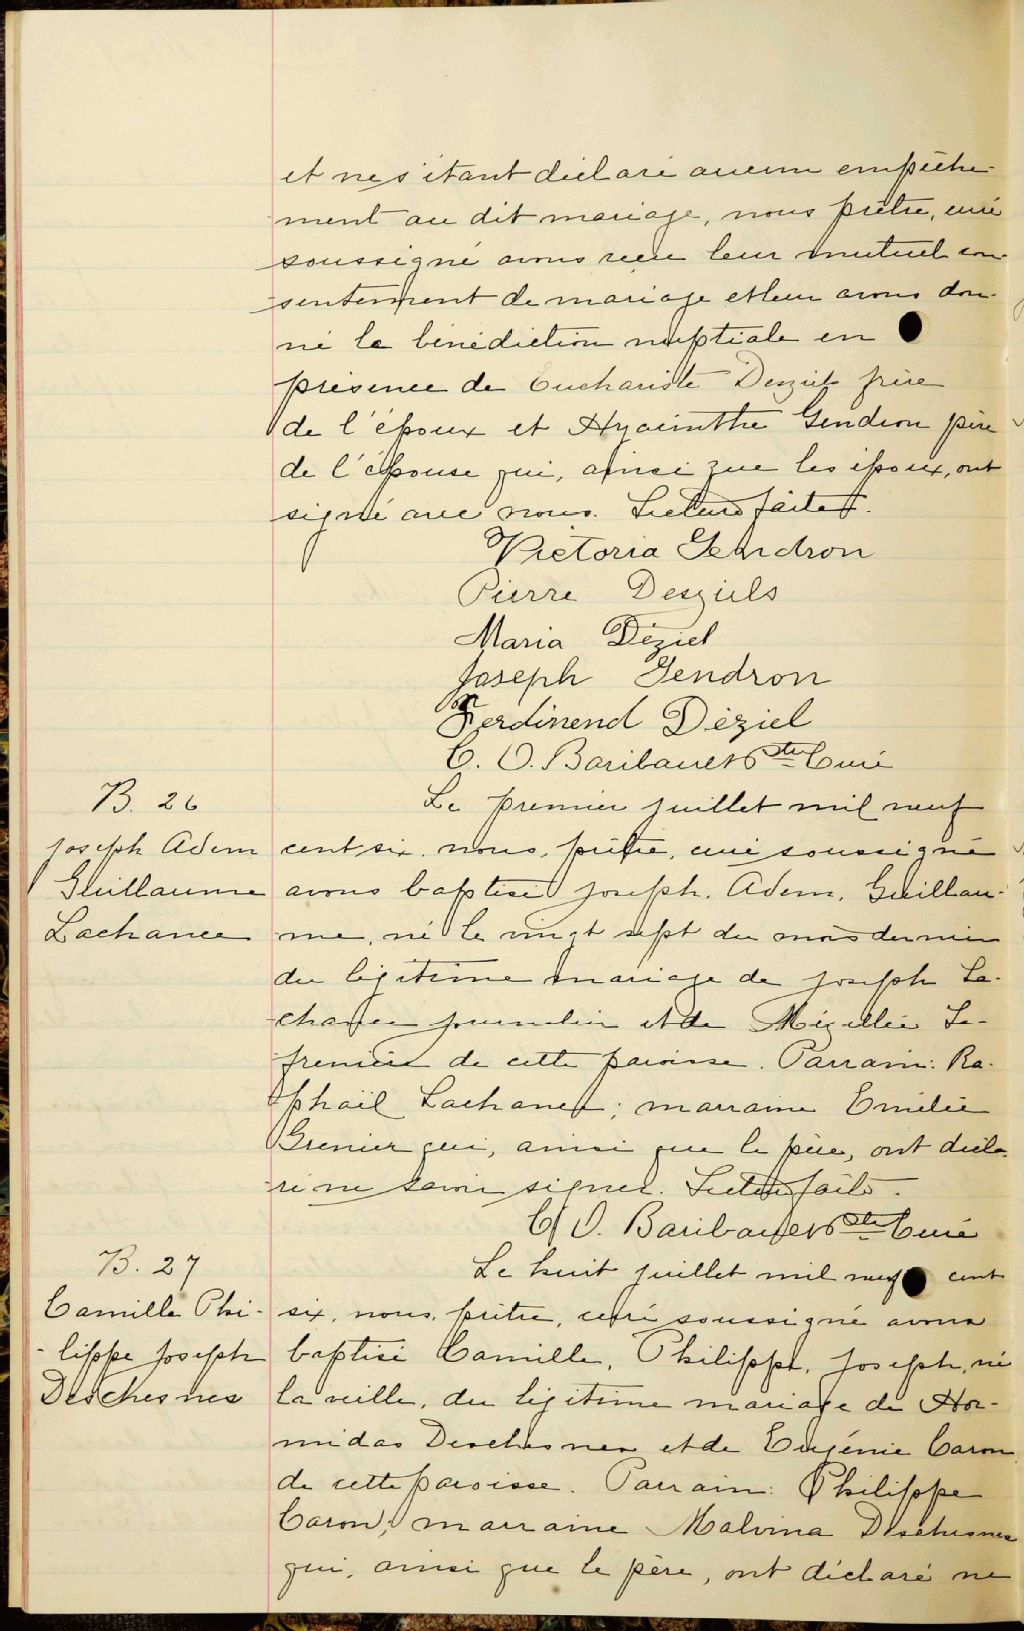 et ne s'étant déclaré aucun empêche-
ment au dit mariage, nous prêtre, curé
soussigné avons reçu leur mutuel con-
sentement de mariage et leur avons don-
né la bénédiction nuptiale en
présence de Euchariste Desziel frère
de l'époux et Hyacinthe Gendron père
de l'épouse qui, ainsi que les époux, ont
signé avec nous. Lecture faite.
Victoria Gendron
Pierre Desziels
Maria Déziel
Joseph Gendron
Ferdinend Déziel
C. O. Baribault Ptre Curé
B. 26
Joseph Adem
Guillaume
Lachance
Le premier juillet mil neuf
cent six, nous, prêtre, curé soussigné
avons baptisé Joseph, Adem, Guillau-
me, né le vingt sept du mois dernier
du légitime mariage de Joseph La-
chance journalier et de Mézélie La-
frenière de cette paroisse. Parrain: Ra-
phaël Lachance; marraine Emélie
Grenier qui, ainsi que le père, ont décla-
ré ne savoir signer. Lecture faite.
C. O. Baribault Ptre Curé
B. 27
Camille Phi-
-lippe Joseph
Deschesnes
Le huit juillet mil neuf cent
six, nous, prêtre, curé soussigné avons
baptisé Camille, Philippe, Joseph, né
la veille, du légitime mariage de Hor-
midas Deschesnes et de Eugénie Caron
de cette paroisse. Parrain: Philippe
Caron; marraine Malvina Deschesnes
qui, ainsi que le père, ont déclaré ne